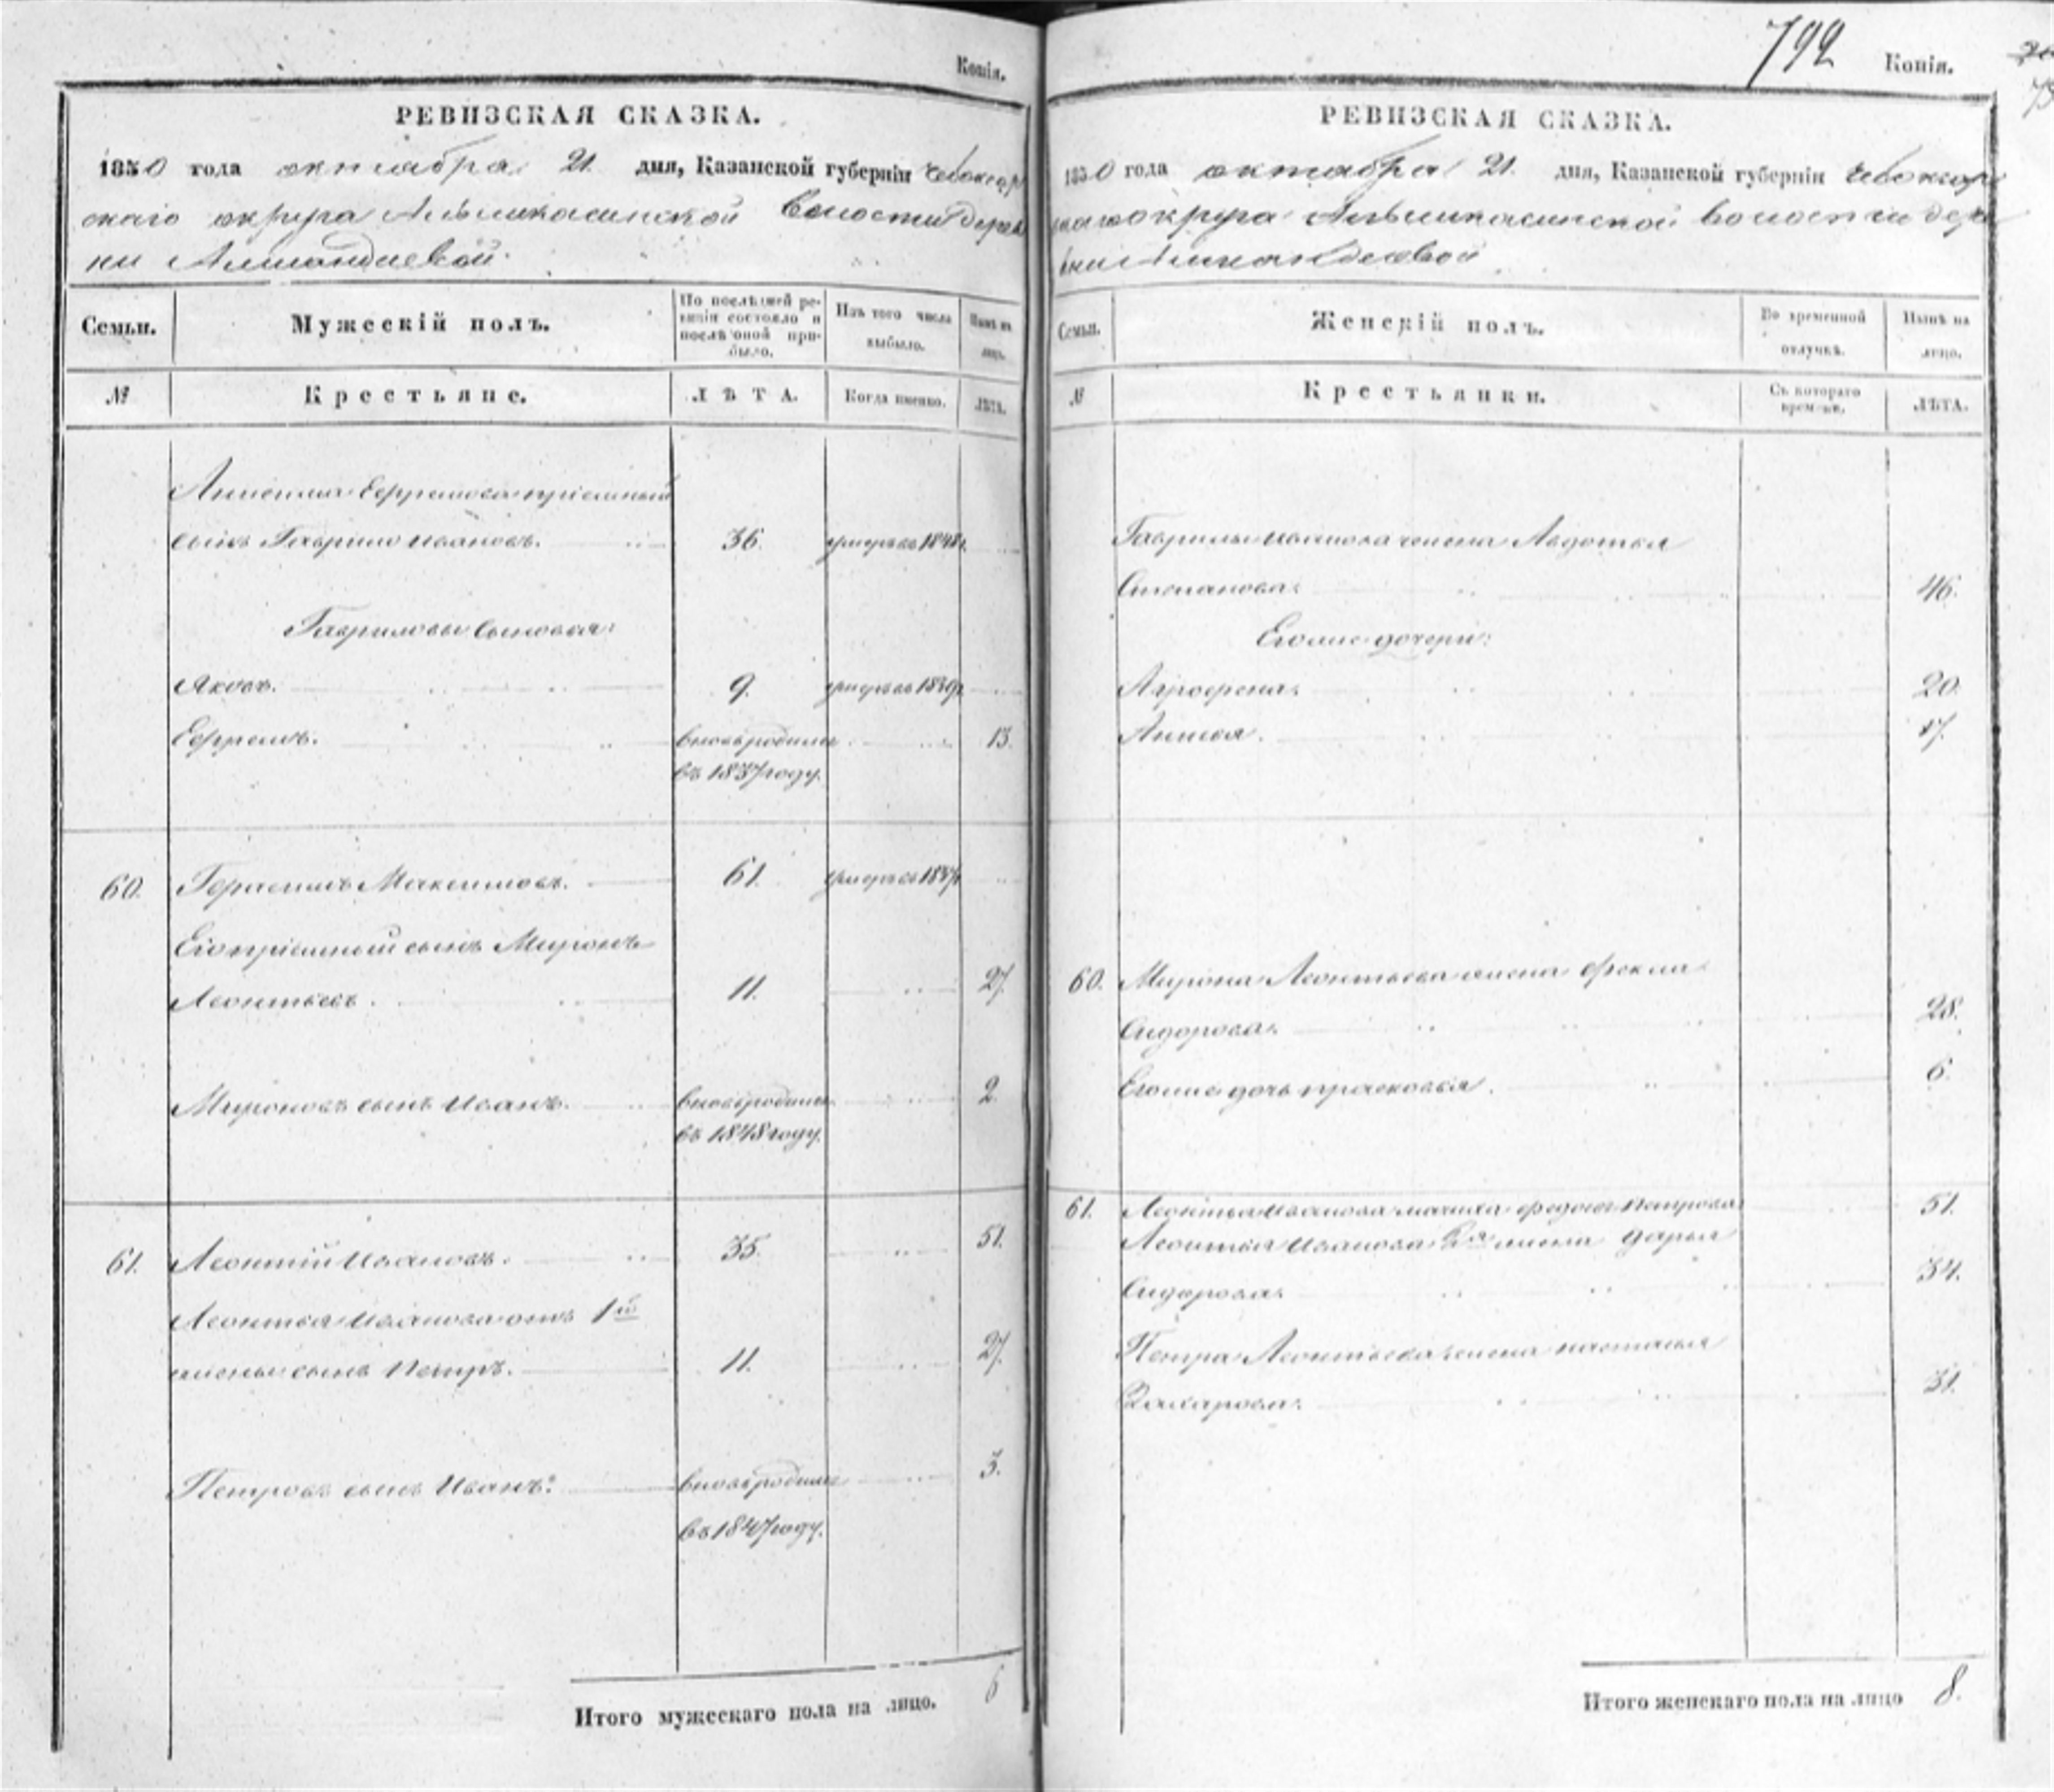 Копія.
РЕВИЗСКАЯ СКАЗКА.
1850 года октября 21 дня, Казанской губерніи Чебоксар
скаго округа Алымкасинской Волости дерев
ни
Семьи.
Мужескій полъ.
По послѣдней ре-
визіи состояло и
послѣ оной при-
было.
Изъ того числа
выбыло.
Нынѣ на
лицо.
№
Крестьяне.
ЛѢТА.
Когда именно.
ЛѢТА.
Анисима Ефремова пріемный
сынъ Гаврило Ивановъ. 36. умеръ въ 1848г.
Гавриловы сыновья:
Яковъ. 9. умеръ въ 1839г.
Ефремъ. вновь родился 13.
въ 1837 году.
60. Герасимъ Максимовъ. 61. умеръ въ
Его пріемный сынъ Миронъ
Леонтьевъ. 11. 27.
Мироновъ сынъ Иванъ. вновь родился 2.
въ 1848 году.
61. Леонтій Ивановъ. 35. 51.
Леонтья Иванова отъ 1й
жены сынъ Петръ. 11. 27.
Петровъ сынъ Иванъ. вновь родился 3.
въ 1847 году.
Итого мужескаго пола на лицо. 6
792
Копія.
РЕВИЗСКАЯ СКАЗКА.
1850 года октября 21. дня, Казанской губерніи Чебоксар
скаго округа Алымкасинской волости дере
вни
Семьи.
Женскій полъ.
Во временной
отлучкѣ.
Нынѣ на
лицо.
№
Крестьянки.
Съ котораго
времени.
ЛѢТА.
Гаврилы Иванова жена Авдотья
Степанова. 46.
Его же дочери:
Агрофена. 20.
Анисья. 17.
60. Мирона Леонтьева жена Фекла
Сидорова. 28.
Его же дочь Прасковья. 6.
61. Леонтья Иванова мачиха Федосья Петрова 51.
Леонтья Иванова 2я жена Дарья
Сидорова. 34.
Петра Леонтьева жена Настасья
Захарова. 31.
Итого женскаго пола на лицо 8.